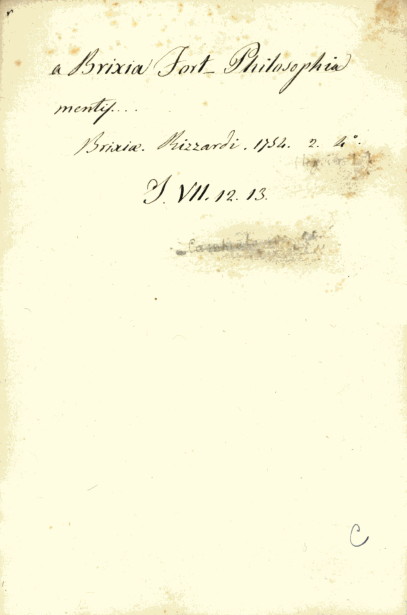 a Brixia Fort_ Philosophia
mentis...
Brixiæ. Rizzardi. 1754. 2. 4°.
J. VII. 12. 13.
C